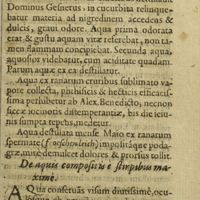 Dominus Gesnerus) in cucurbita relinque-
batur materia ad nigredinem accedens &
dulcis, graui odore. Aqua prima odorata
erat & gustu aquam vitæ referebat, non ta-
men flammam concipiebat. Secunda aqua,
aquosior videbatur, cum aciditate quadam.
Parum aquæ ex ea destillatur.
Aqua ex ranarum cruribus sublimato va-
pore collecta, phthisicis & hecticis efficacis-
sima perhibetur ab Alex. Benedicto, nec non
siccæ iocinoris distemperantiæ, bis die ieiu-
nis sumpta tepebis,
Aqua destillata mense Maio ex ranarum
spermate (froschenleich) impositáque poda-
græ, mirè demulcet dolores & prorsus tollit.
De aquis compositis è stirpibus ma-
ximè.
AQua conseruãs visum diutissimè,